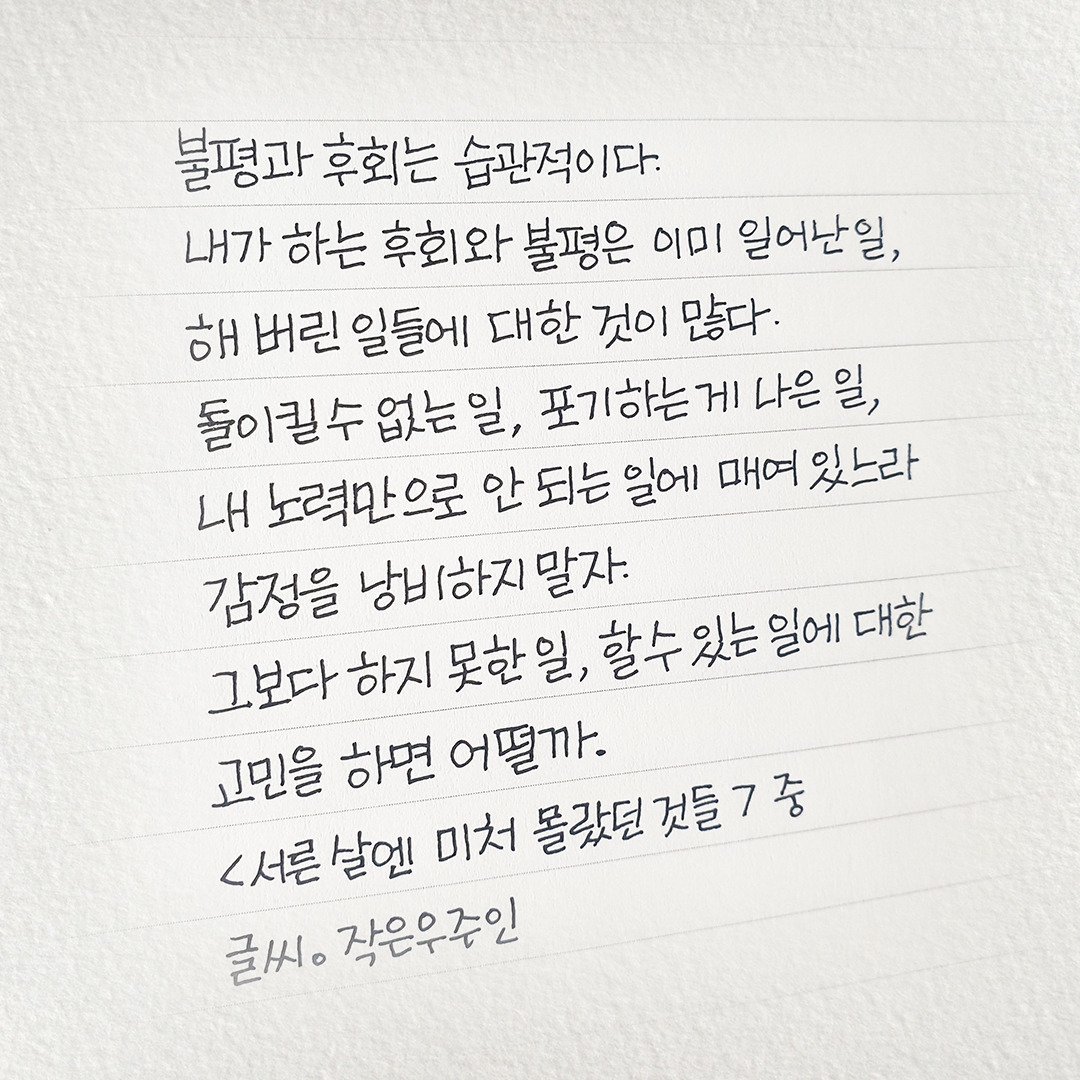 불평과 후회는 습관적이다.
내가 하는 후회와 불평은 이미 일어난 일,
해 버린 일들에 대한 것이 많다.
돌이킬 수 없는 일, 포기하는 게 나은 일,
내 노력만으로 안 되는 일에 매여 있느라
감정을 낭비하지 말자.
그보다 하지 못한 일, 할 수 있는 일에 대한
고민을 하면 어떨까.
<서른 살엔 미처 몰랐던 것들> 중
글씨。작은우주인